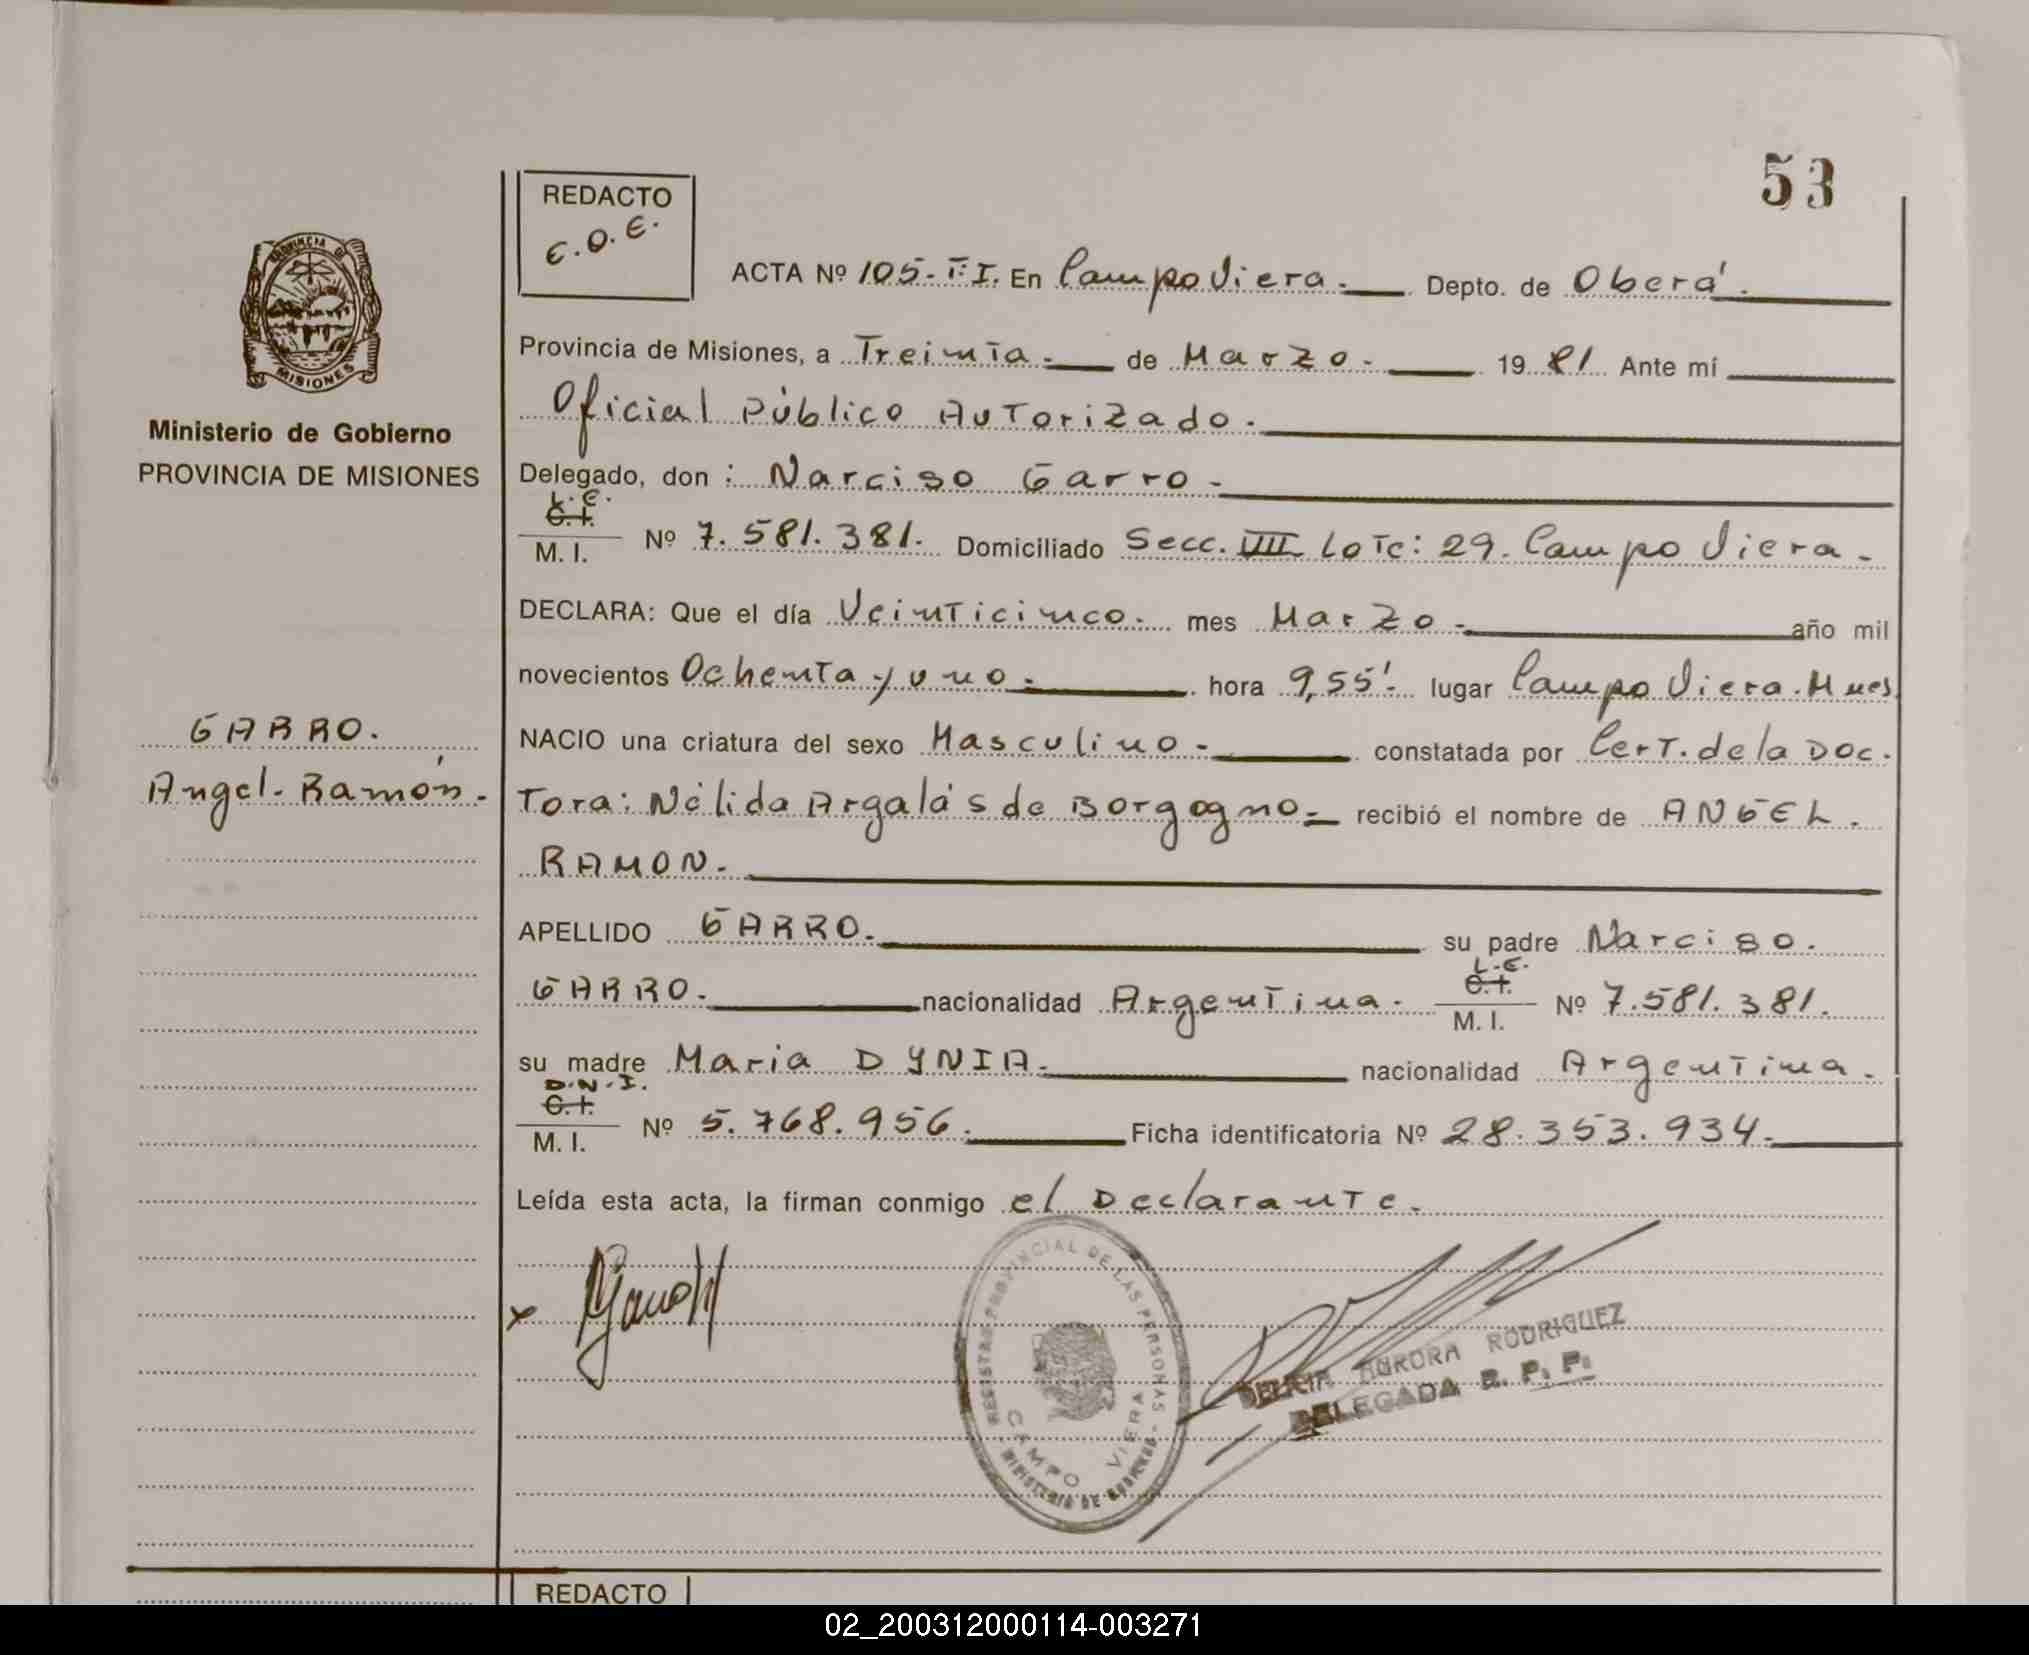 53
REDACTO
E.O.E.
ACTA Nº 105-T:I. En Campo Viera.- Depto. de Oberá.
Provincia de Misiones, a Treinta.- de Marzo.- 1981. Ante mí
Oficial Público Autorizado.
PROVINCIA DE
MISIONES
Ministerio de Gobierno
PROVINCIA DE MISIONES
Delegado, don: Narciso Garro.-
L.E.
C.I.
M. I. Nº 7.581.381. Domiciliado Secc. VIII Lote: 29. Campo Viera.-
DECLARA: Que el día Veinticinco. mes Marzo.- año mil
novecientos Ochenta y uno.- hora 9,55'.- lugar Campo Viera. Mnes
GARRO.
Angel. Ramón.-
NACIO una criatura del sexo Masculino.- constatada por Cert. de la Doc.
Tora: Nélida Argalá's de Borgogno.- recibió el nombre de ANGEL.
RAMON.-
APELLIDO GARRO.- su padre Narciso.
L.E.
GARRO.- nacionalidad Argentina. C.I.
M. I. Nº 7.581.381.
su madre Maria DYNIA.- nacionalidad Argentina.-
D.N.I.
C.I.
M. I. Nº 5.768.956.- Ficha identificatoria Nº 28.353.934.-
Leída esta acta, la firman conmigo el Declarante.
x
REGISTRO PROVINCIAL DE LAS PERSONAS
CAMPO VIERA
MINISTERIO DE GOBIERNO
AURORA RODRIGUEZ
DELEGADA R. P. P.
REDACTO
02_200312000114-003271